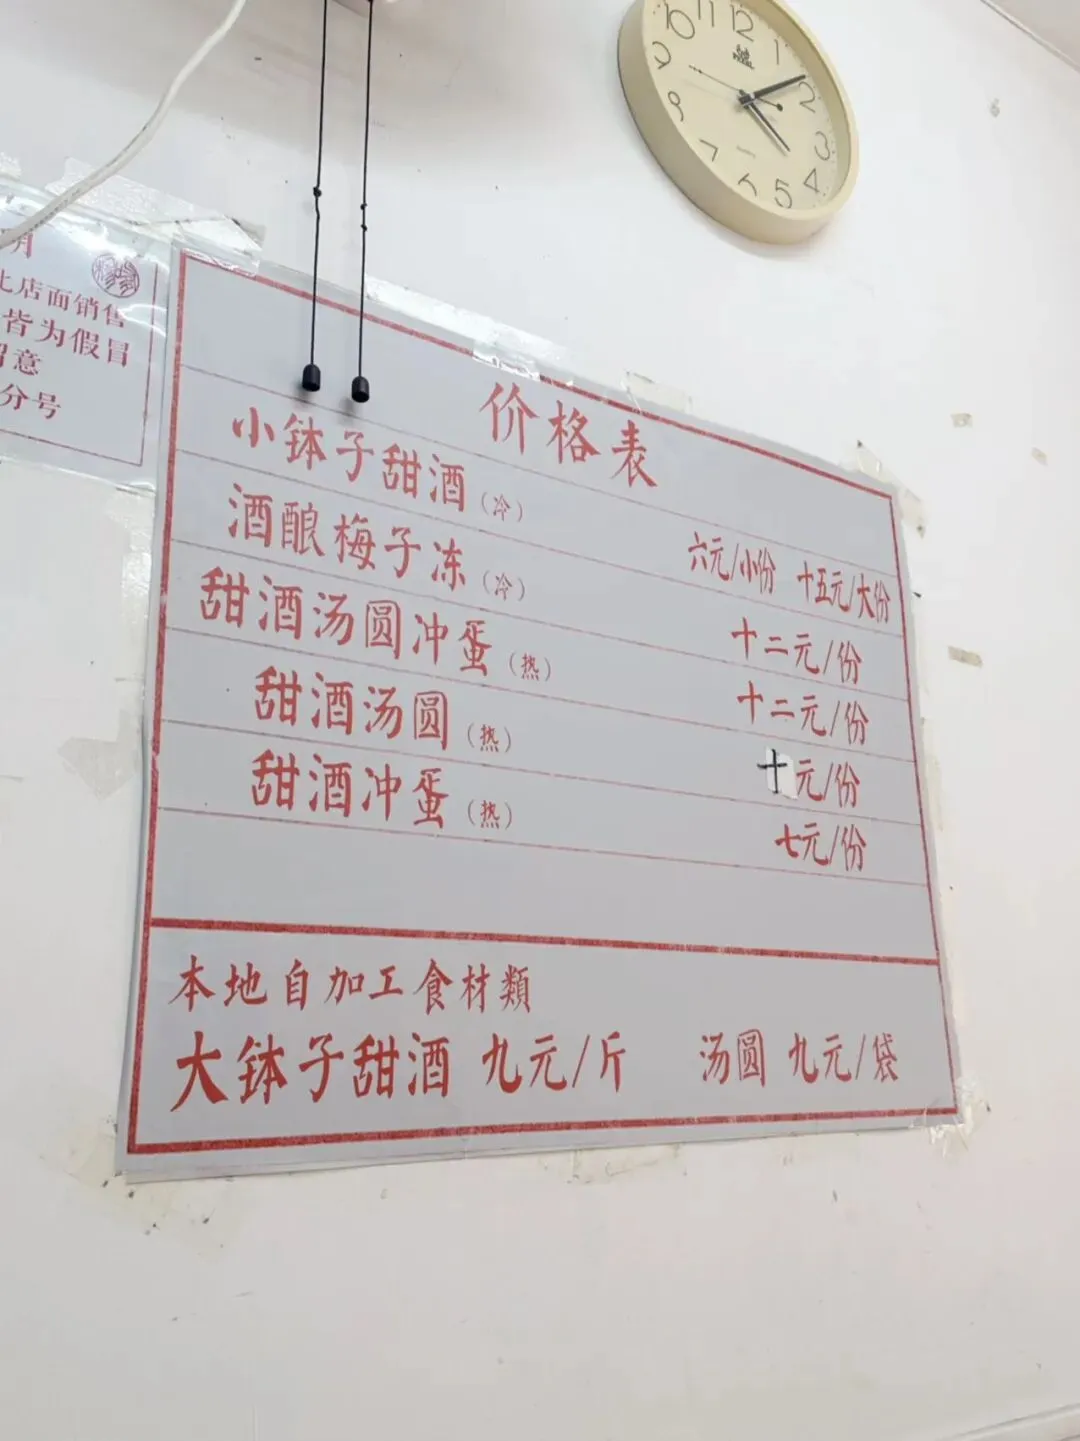 10 11 12 1 2 3 4 5 6 7 8 9
月
店面销售
皆为假冒
意
分号
价格表
小钵子甜酒（冷） 六元/小份 十五元/大份
酒酿梅子冻（冷） 十二元/份
甜酒汤圆冲蛋（热） 十二元/份
甜酒汤圆（热） 十元/份
甜酒冲蛋（热） 七元/份
本地自加工食材類
大钵子甜酒 九元/斤 汤圆 九元/袋